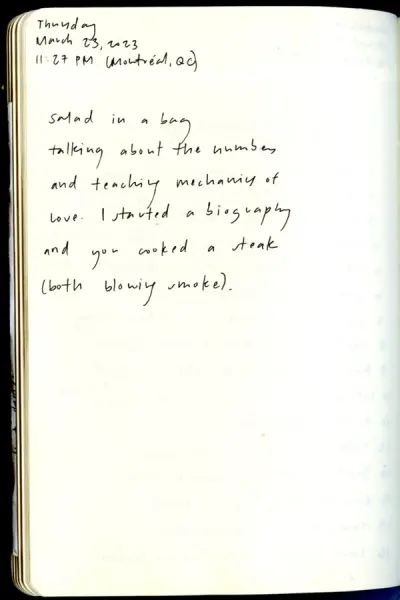 Thursday
March 23, 2023
11:27 PM (Montréal, QC)
salad in a bag
talking about the numbers
and teaching mechanics of
love. I started a biography
and you cooked a steak
(both blowing smoke).